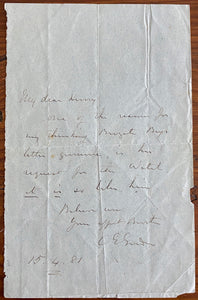 My dear Henry
One of the reasons for
my thinking Burzili Bey's
letter genuine is his
request for the Watch
it is so like him
Believe me
Yours
C E Gordon
15 4 81